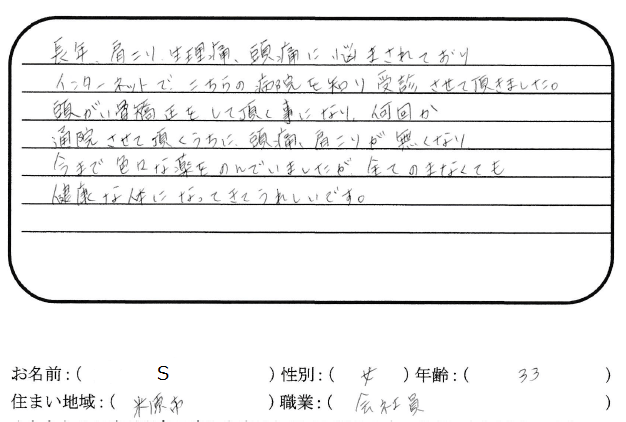 長年、肩こり生理痛、頭痛に悩まされており
インターネットで、こちらの病院を知り受診させて頂きました。
頭がい骨矯正をして頂く事になり、何回か
通院させて頂くうちに、頭痛、肩こりが無くなり
今まで色々な薬をのんでいましたが、全てのまなくても
健康な体になってきてうれしいです。
お名前:( S )性別:( 女 )年齢:( 33 )
住まい地域:( 米原市 )職業:( 会社員 )